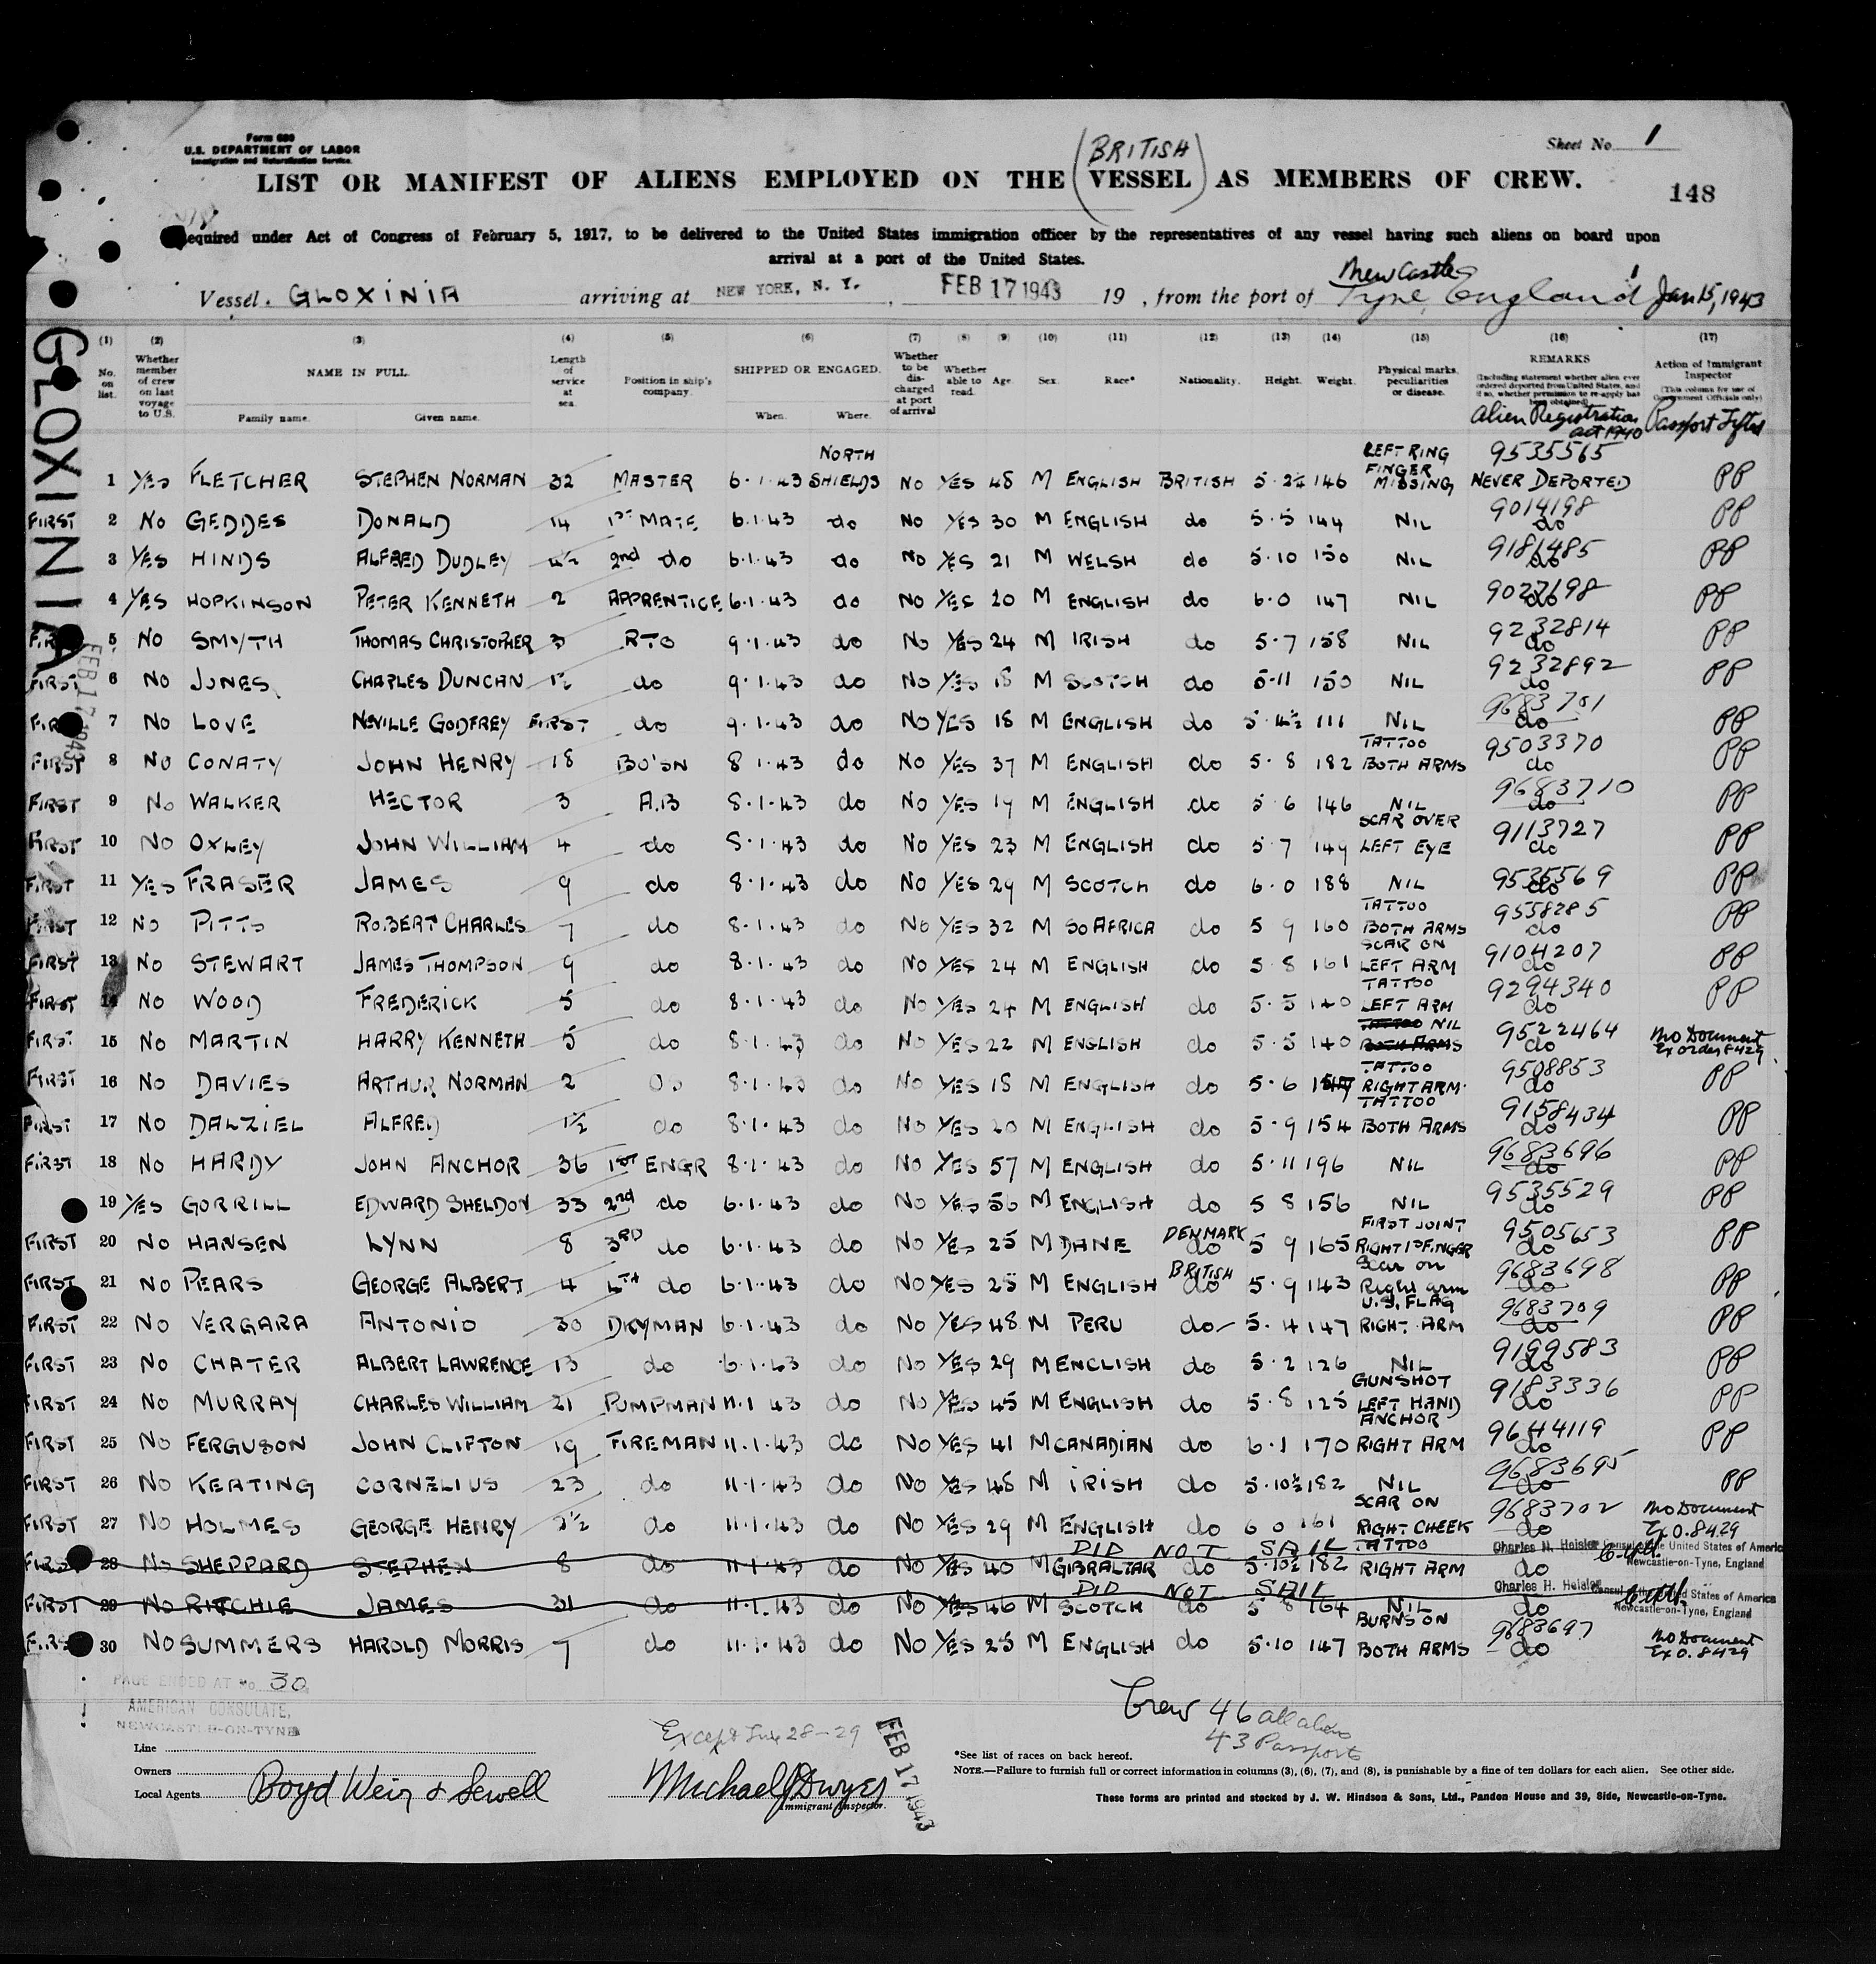 Form 680
U.S. DEPARTMENT OF LABOR
Immigration and Naturalization Service.
Sheet No. 1
(BRITISH)
LIST OR MANIFEST OF ALIENS EMPLOYED ON THE VESSEL AS MEMBERS OF CREW.
148
Required under Act of Congress of February 5, 1917, to be delivered to the United States immigration officer by the representatives of any vessel having such aliens on board upon
arrival at a port of the United States.
Newcastle
Vessel. GLOXINIA arriving at NEW YORK, N. Y. , FEB 17 1943 19 , from the port of Tyne, England Jan 15, 1943
GLOXINIA
FEB 17 1943
(1) (2) (3) (4) (5) (6) (7) (8) (9) (10) (11) (12) (13) (14) (15) (16) (17)
No. on list. Whether member of crew on last voyage to U.S. NAME IN FULL. Family name. Given name. Length of service at sea. Position in ship's company. SHIPPED OR ENGAGED. When. Where. Whether to be discharged at port of arrival Whether able to read. Age. Sex. Race* Nationality. Height. Weight. Physical marks, peculiarities or disease. REMARKS (Including statement whether alien ever ordered deported from United States, and if so, whether permission to re-apply has been obtained) Action of Immigrant Inspector (This column for use of Government Officials only)
Alien Registration act 1940 Passport
1 YES FLETCHER STEPHEN NORMAN 32 MASTER 6.1.43 NORTH SHIELDS NO YES 48 M ENGLISH BRITISH 5.2½ 146 LEFT RING FINGER MISSING 9535565 NEVER DEPORTED PP
FIRST 2 NO GEDDES DONALD 14 1ST MATE 6.1.43 do NO YES 30 M ENGLISH do 5.5 144 NIL 9014198 do PP
3 YES HINDS ALFRED DUDLEY 4½ 2nd do 6.1.43 do NO YES 21 M WELSH do 5.10 150 NIL 9181485 do PP
4 YES HOPKINSON PETER KENNETH 2 APPRENTICE 6.1.43 do NO YES 20 M ENGLISH do 6.0 147 NIL 9027698 do PP
FIRST 5 NO SMYTH THOMAS CHRISTOPHER 3 RTO 9.1.43 do NO YES 24 M IRISH do 5.7 158 NIL 9232814 do PP
FIRST 6 NO JONES CHARLES DUNCAN 1½ do 9.1.43 do NO YES 18 M SCOTCH do 5.11 150 NIL 9232892 do PP
FIRST 7 NO LOVE NEVILLE GODFREY FIRST do 9.1.43 do NO YES 18 M ENGLISH do 5.4½ 111 NIL 9683701 do PP
FIRST 8 NO CONATY JOHN HENRY 18 BO'SN 8.1.43 do NO YES 37 M ENGLISH do 5.8 182 TATTOO BOTH ARMS 9503370 do PP
FIRST 9 NO WALKER HECTOR 3 A.B 8.1.43 do NO YES 19 M ENGLISH do 5.6 146 NIL 9683710 do PP
FIRST 10 NO OXLEY JOHN WILLIAM 4 do 8.1.43 do NO YES 23 M ENGLISH do 5.7 149 SCAR OVER LEFT EYE 9113727 do PP
FIRST 11 YES FRASER JAMES 9 do 8.1.43 do NO YES 29 M SCOTCH do 6.0 188 NIL 9535569 do PP
FIRST 12 NO PITTS ROBERT CHARLES 7 do 8.1.43 do NO YES 32 M SO AFRICA do 5 9 160 TATTOO BOTH ARMS 9558285 do PP
FIRST 13 NO STEWART JAMES THOMPSON 9 do 8.1.43 do NO YES 24 M ENGLISH do 5.8 161 SCAR ON LEFT ARM 9104207 do PP
FIRST 14 NO WOOD FREDERICK 5 do 8.1.43 do NO YES 24 M ENGLISH do 5.5 140 TATTOO LEFT ARM 9294340 do PP
FIRST 15 NO MARTIN HARRY KENNETH 5 do 8.1.43 do NO YES 22 M ENGLISH do 5.5 140 TATTOO NIL BOTH ARMS 9522464 do No Document Ex Order 8429
FIRST 16 NO DAVIES ARTHUR NORMAN 2 do 8.1.43 do NO YES 18 M ENGLISH do 5.6 TATTOO RIGHT ARM. 9508853 do PP
FIRST 17 NO DALZIEL ALFRED 1½ do 8.1.43 do NO YES 20 M ENGLISH do 5.9 154 TATTOO BOTH ARMS 9158434 do PP
FIRST 18 NO HARDY JOHN ANCHOR 36 1ST ENGR 8.1.43 do NO YES 57 M ENGLISH do 5.11 196 NIL 9683696 do PP
19 YES GORRILL EDWARD SHELDON 33 2nd do 6.1.43 do NO YES 56 M ENGLISH do 5 8 156 NIL 9535529 do PP
FIRST 20 NO HANSEN LYNN 8 3RD do 6.1.43 do NO YES 25 M DANE DENMARK do 5 9 165 FIRST JOINT RIGHT 1st FINGER 9505653 do PP
FIRST 21 NO PEARS GEORGE ALBERT 4 4TH do 6.1.43 do NO YES 25 M ENGLISH BRITISH do 5.9 143 Scar on Right arm 9683698 do PP
FIRST 22 NO VERGARA ANTONIO 30 DKYMAN 6.1.43 do NO YES 48 M PERU do 5.4 147 U.S. FLAG RIGHT ARM 9683709 do PP
FIRST 23 NO CHATER ALBERT LAWRENCE 13 do 6.1.43 do NO YES 29 M ENGLISH do 5.2 126 NIL 9199583 do PP
FIRST 24 NO MURRAY CHARLES WILLIAM 21 PUMPMAN 11.1 43 do NO YES 45 M ENGLISH do 5.8 125 GUNSHOT LEFT HAND 9183336 do PP
FIRST 25 NO FERGUSON JOHN CLIFTON 19 FIREMAN 11.1.43 do NO YES 41 M CANADIAN do 6.1 170 ANCHOR RIGHT ARM 9644119 do PP
FIRST 26 NO KEATING CORNELIUS 23 do 11.1.43 do NO YES 48 M IRISH do 5.10½ 182 NIL 9683695 do PP
FIRST 27 NO HOLMES GEORGE HENRY 2½ do 11.1.43 do NO YES 29 M ENGLISH do 6 0 161 SCAR ON RIGHT CHEEK 9683702 do No Document Ex O. 8429
DID NOT SAIL
FIRST 28 NO SHEPPARD STEPHEN 8 do 11.1.43 do NO YES 40 M GIBRALTAR do 5.10½ 182 TATTOO RIGHT ARM do Charles H. Heisler Consul of the United States of America Newcastle-on-Tyne, England
DID NOT SAIL
FIRST 29 NO RITCHIE JAMES 31 do 11.1.43 do NO YES 46 M SCOTCH do 5 8 164 NIL do Charles H. Heisler Consul of the United States of America Newcastle-on-Tyne, England
FIRST 30 NO SUMMERS HAROLD MORRIS 7 do 11.1.43 do NO YES 25 M ENGLISH do 5.10 147 BURNS ON BOTH ARMS 9683697 do No Document Ex O. 8429
PAGE ENDED AT No. 30
AMERICAN CONSULATE,
NEWCASTLE-ON-TYNE
Crew 46 all aliens
43 Passports
Except Line 28-29
FEB 17 1943
Line
Owners
Local Agents Boyd Weir & Sewell
Michael J Dwyer
Immigrant Inspector.
*See list of races on back hereof.
NOTE.—Failure to furnish full or correct information in columns (3), (6), (7), and (8), is punishable by a fine of ten dollars for each alien. See other side.
These forms are printed and stocked by J. W. Hindson & Sons, Ltd., Pandon House and 39, Side, Newcastle-on-Tyne.